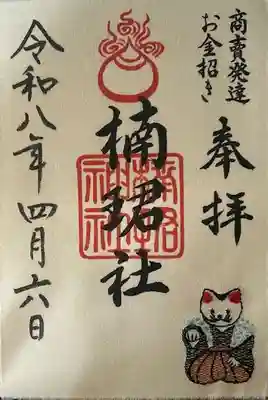 商賣発達
お金招き
奉拝
楠珺社
令和八年四月六日